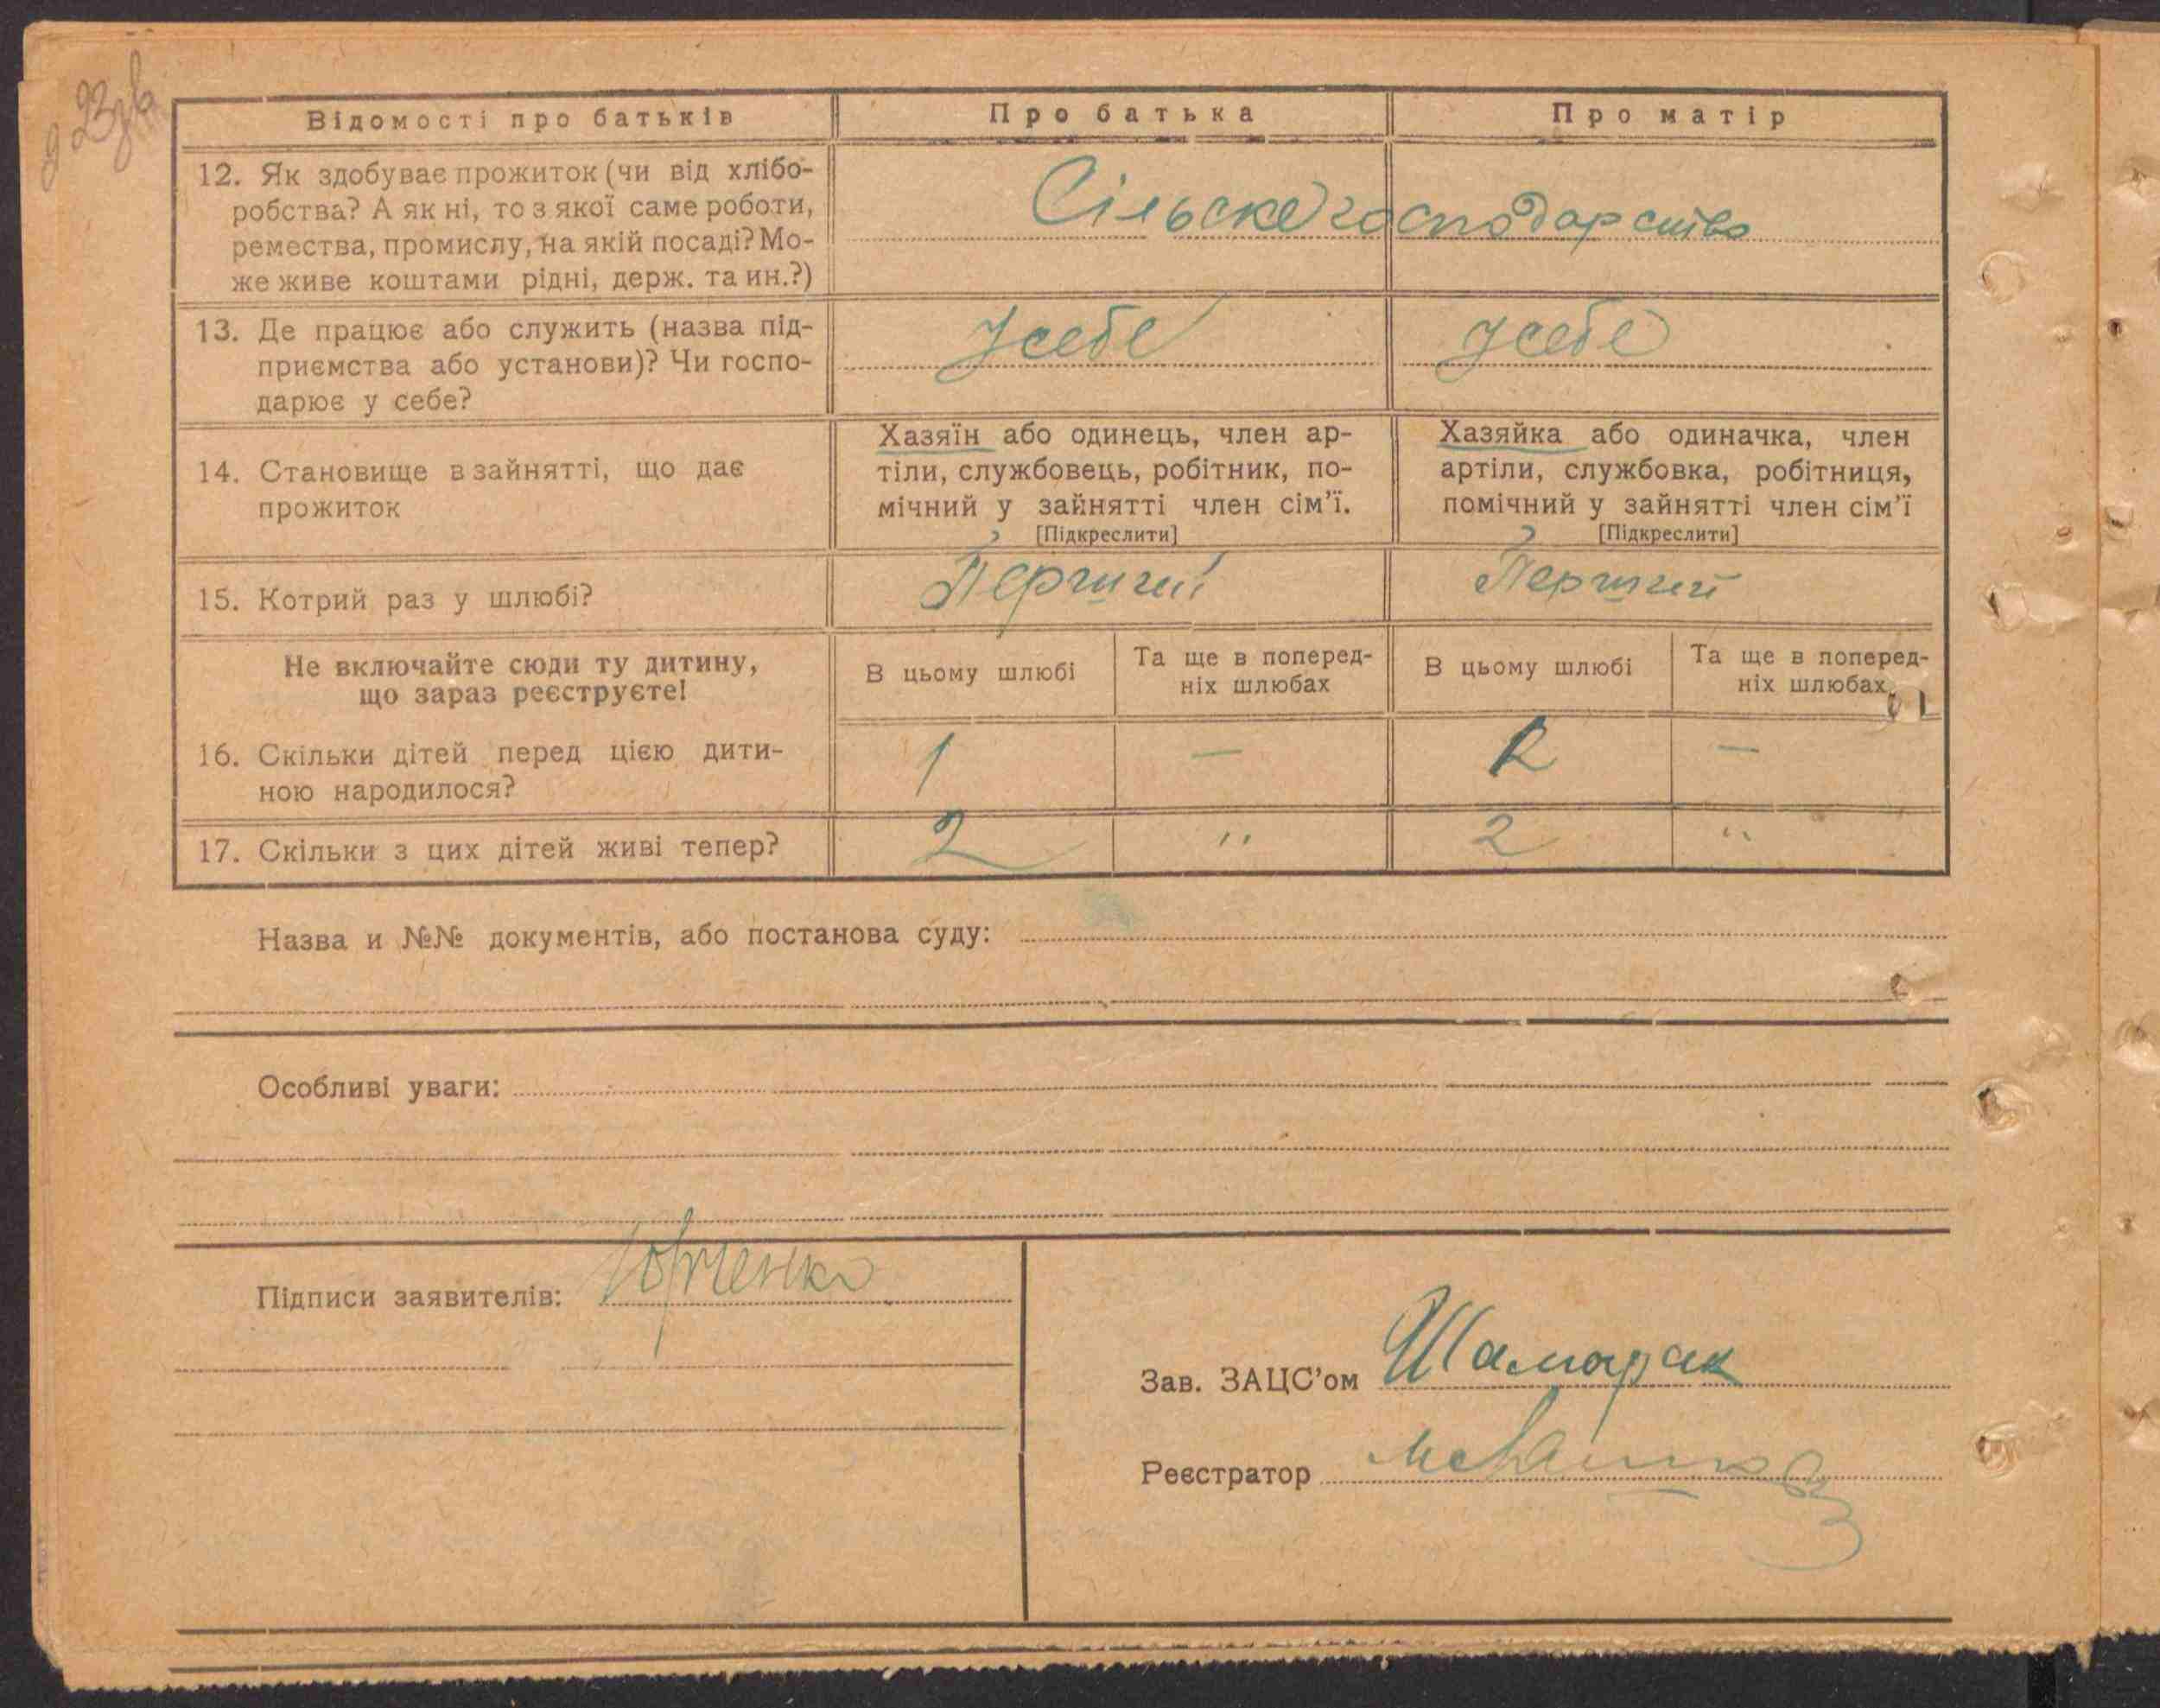 23зв
Відомості про батьків
Про батька
Про матір
12. Як здобуває прожиток (чи від хлібо-
робства? А як ні, то з якої саме роботи,
ремества, промислу, на якій посаді? Мо-
же живе коштами рідні, держ. та ин.?)
Сільске господарство
13. Де працює або служить (назва під-
приємства або установи)? Чи госпо-
дарює у себе?
У себе
У себе
14. Становище в зайнятті, що дає
прожиток
Хазяїн або одинець, член ар-
тіли, службовець, робітник, по-
мічний у зайнятті член сім’ї.
[Підкреслити]
Хазяйка або одиначка, член
артіли, службовка, робітниця,
помічний у зайнятті член сім’ї
[Підкреслити]
15. Котрий раз у шлюбі?
Перший
Перший
Не включайте сюди ту дитину,
що зараз реєструєте!
В цьому шлюбі
Та ще в поперед-
ніх шлюбах
В цьому шлюбі
Та ще в поперед-
ніх шлюбах
16. Скільки дітей перед цією дити-
ною народилося?
1 —
—
17. Скільки з цих дітей живі тепер?
2 " 2 "
Назва и №№ документів, або постанова суду:
Особливі уваги:
Підписи заявителів: Юрченко
Зав. ЗАЦС’ом Шамарак
Реєстратор